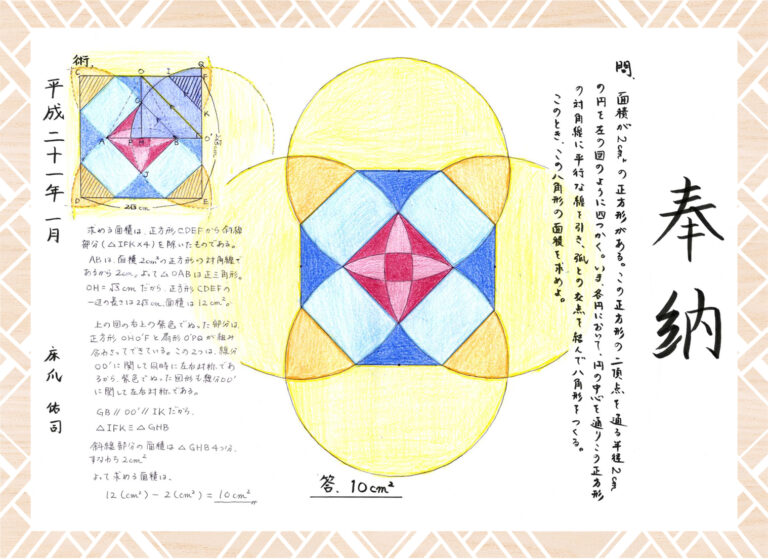 奉納
問、面積が2cm²の正方形がある。この正方形の二頂点を通る半径2cm
の円を左の図のように四つかく。いま、各円において、円の中心を通りこの正方形
の対角線に平行な線を引き、弧との交点を結んで八角形をつくる。
このとき、この八角形の面積を求めよ。
答、10cm²
術、
C
O
I
Q
F
G
K
A
P
H
B
O'
J
D
E
2√3cm
2√3cm
求める面積は、正方形CDEFから斜線
部分(△IFK×4)を除いたものである。
ABは、面積2cm²の正方形の対角線で
あるから2cm、よって△OABは正三角形。
OH=√3cmだから、正方形CDEFの
一辺の長さは2√3cm、面積は12cm²。
上の図の右上の紫色でぬった部分は、
正方形OHO'Fと扇形O'PQが組み
合わさってできている。この2つは、線分
OO'に関して同時に左右対称であ
るから、紫色でぬった図形も線分OO'
に関して左右対称である。
GB∥OO'∥IKだから、
△IFK≡△GHB
斜線部分の面積は△GHB4つ分、
すなわち2cm²
よって求める面積は、
12(cm²)-2(cm²)=10cm²
平成二十一年一月
床爪佑司